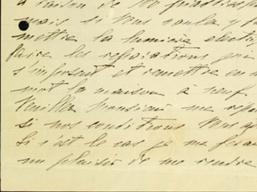 à raison de
mais si vous voulez y
mettre la lumière électri
faire les réparations qui
s'imposent et remettre en
mot la maison à neuf.
Veuillez Monsieur me
si nos conditions vous
Si c'est le cas je me ferai
un plaisir de me rendre